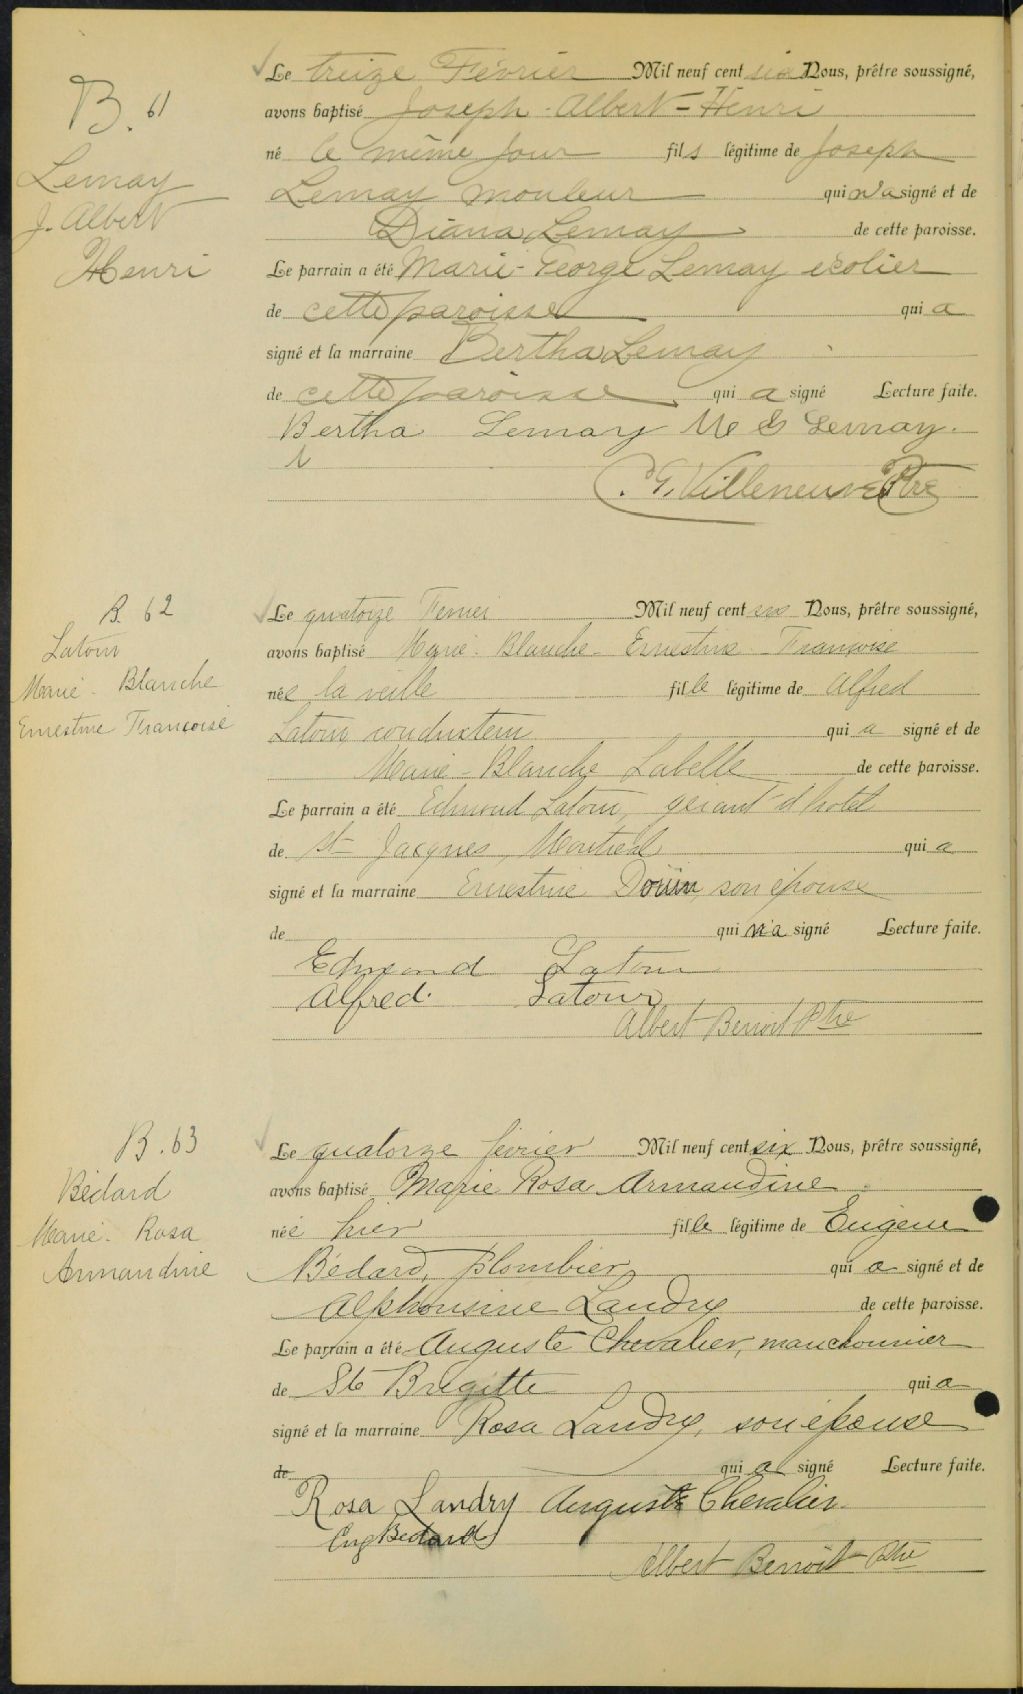 B. 61
Lemay
J. Albert
Henri
Le treize Février Mil neuf cent six Nous, prêtre soussigné,
avons baptisé Joseph-Albert-Henri
né le même jour fils légitime de Joseph
Lemay mouleur qui n'a signé et de
Diana Lemay de cette paroisse.
Le parrain a été Marie-George Lemay écolier
de cette paroisse qui a
signé et la marraine Bertha Lemay
de cette paroisse qui a signé Lecture faite.
Bertha Lemay M G Lemay.
C. G. Villeneuve Ptre
B. 62
Latour
Marie-Blanche
Ernestine Françoise
Le quatorze Fevrier Mil neuf cent six Nous, prêtre soussigné,
avons baptisé Marie-Blanche-Ernestine-Françoise
née la veille fille légitime de Alfred
Latour conducteur qui a signé et de
Marie-Blanche Labelle de cette paroisse.
Le parrain a été Edmond Latour, gérant d'hotel
de St Jacques, Montréal qui a
signé et la marraine Ernestine son épouse
de qui n'a signé Lecture faite.
Edmond Latour
Alfred Latour
Albert Benoit Ptre
B. 63
Bédard
Marie-Rosa
Armandine
Le quatorze février Mil neuf cent six Nous, prêtre soussigné,
avons baptisé Marie Rosa Armandine
née hier fille légitime de Eugène
Bédard, plombier qui a signé et de
Alphonsine Landry de cette paroisse.
Le parrain a été Auguste Chevalier, manchonnier
de Ste Brigitte qui a
signé et la marraine Rosa Landry, son épouse
de qui a signé Lecture faite.
Rosa Landry Auguste Chevalier
Eug Bedard
Albert Benoit Ptre